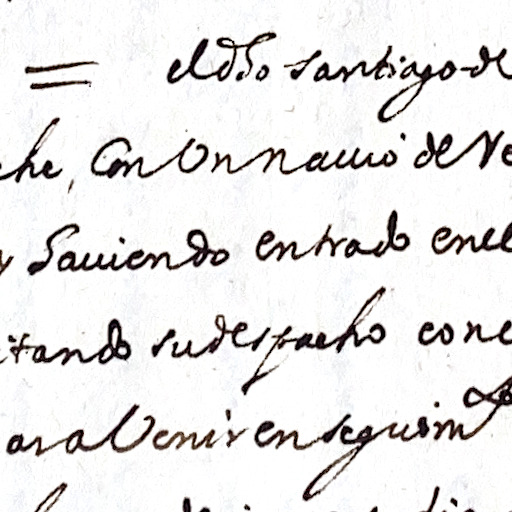 = el dho santiago de
che, Con Un nauio de Ve
y hauiendo entrado en el
itando su despacho con e
ara Venir en seguim.to